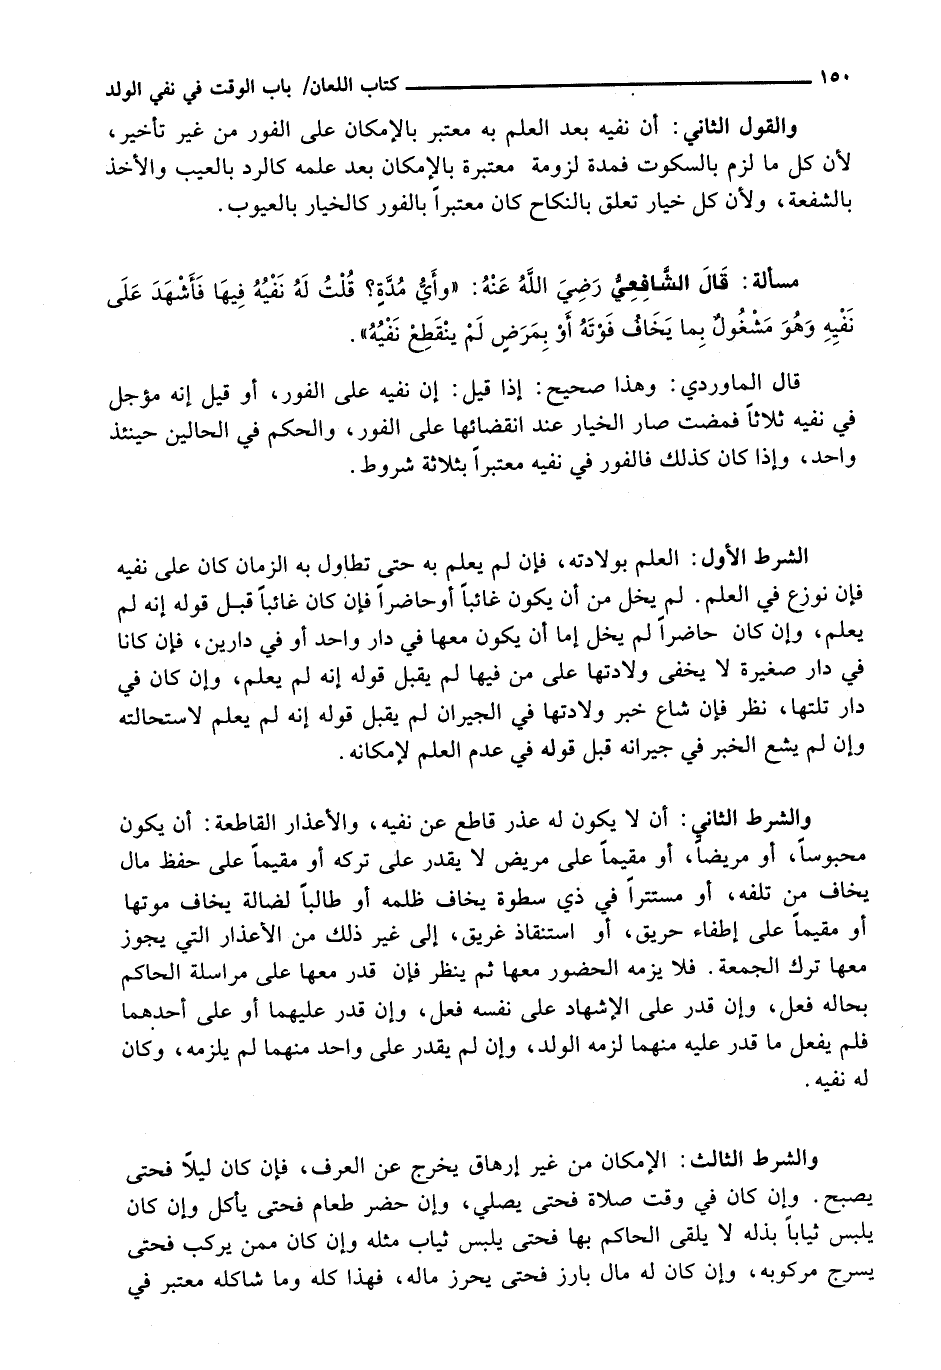 ١٥٠ كتاب اللعان/ باب الوقت في نفي الولد
والقول الثاني: أن نفيه بعد العلم به معتبر بالإمكان على الفور من غير تأخير،
لأن كل ما لزم بالسكوت فمدة لزومة معتبرة بالإمكان بعد علمه كالرد بالعيب والأخذ
بالشفعة، ولأن كل خيار تعلق بالنكاح كان معتبراً بالفور كالخيار بالعيوب.
مسألة: قَالَ الشَّافِعِيُّ رَضِيَ اللَّهُ عَنْهُ: «وأَيُّ مُدَّةٍ؟ قُلْتُ لَهُ نَفْيُهُ فِيهَا فَأَشْهَدَ عَلَى
نَفْيِهِ وَهُوَ مَشْغُولٌ بِما يَخَافُ فَوْتَهُ أَوْ بِمَرَضٍ لَمْ يَنْقَطِعْ نَفْيُهُ».
قال الماوردي: وهذا صحيح: إذا قيل: إن نفيه على الفور، أو قيل إنه مؤجل
في نفيه ثلاثاً فمضت صار الخيار عند انقضائها على الفور، والحكم في الحالين حينئذ
واحد، وإذا كان كذلك فالفور في نفيه معتبراً بثلاثة شروط.
الشرط الأول: العلم بولادته، فإن لم يعلم به حتى تطاول به الزمان كان على نفيه
فإن نوزع في العلم. لم يخل من أن يكون غائباً أوحاضراً فإن كان غائباً قبل قوله إنه لم
يعلم، وإن كان حاضراً لم يخل إما أن يكون معها في دار واحد أو في دارين، فإن كانا
في دار صغيرة لا يخفى ولادتها على من فيها لم يقبل قوله إنه لم يعلم، وإن كان في
دار تلتها، نظر فإن شاع خبر ولادتها في الجيران لم يقبل قوله إنه لم يعلم لاستحالته
وإن لم يشع الخبر في جيرانه قبل قوله في عدم العلم لإمكانه.
والشرط الثاني: أن لا يكون له عذر قاطع عن نفيه، والأعذار القاطعة: أن يكون
محبوساً، أو مريضاً، أو مقيماً على مريض لا يقدر على تركه أو مقيماً على حفظ مال
يخاف من تلفه، أو مستتراً في ذي سطوة يخاف ظلمه أو طالباً لضالة يخاف موتها
أو مقيماً على إطفاء حريق، أو استنقاذ غريق، إلى غير ذلك من الأعذار التي يجوز
معها ترك الجمعة. فلا يزمه الحضور معها ثم ينظر فإن قدر معها على مراسلة الحاكم
بحاله فعل، وإن قدر على الإشهاد على نفسه فعل، وإن قدر عليهما أو على أحدهما
فلم يفعل ما قدر عليه منهما لزمه الولد، وإن لم يقدر على واحد منهما لم يلزمه، وكان
له نفيه.
والشرط الثالث: الإمكان من غير إرهاق يخرج عن العرف، فإن كان ليلاً فحتى
يصبح. وإن كان في وقت صلاة فحتى يصلي، وإن حضر طعام فحتى يأكل وإن كان
يلبس ثياباً بذله لا يلقى الحاكم بها فحتى يلبس ثياب مثله وإن كان ممن يركب فحتى
يسرج مركوبه، وإن كان له مال بارز فحتى يحرز ماله، فهذا كله وما شاكله معتبر في